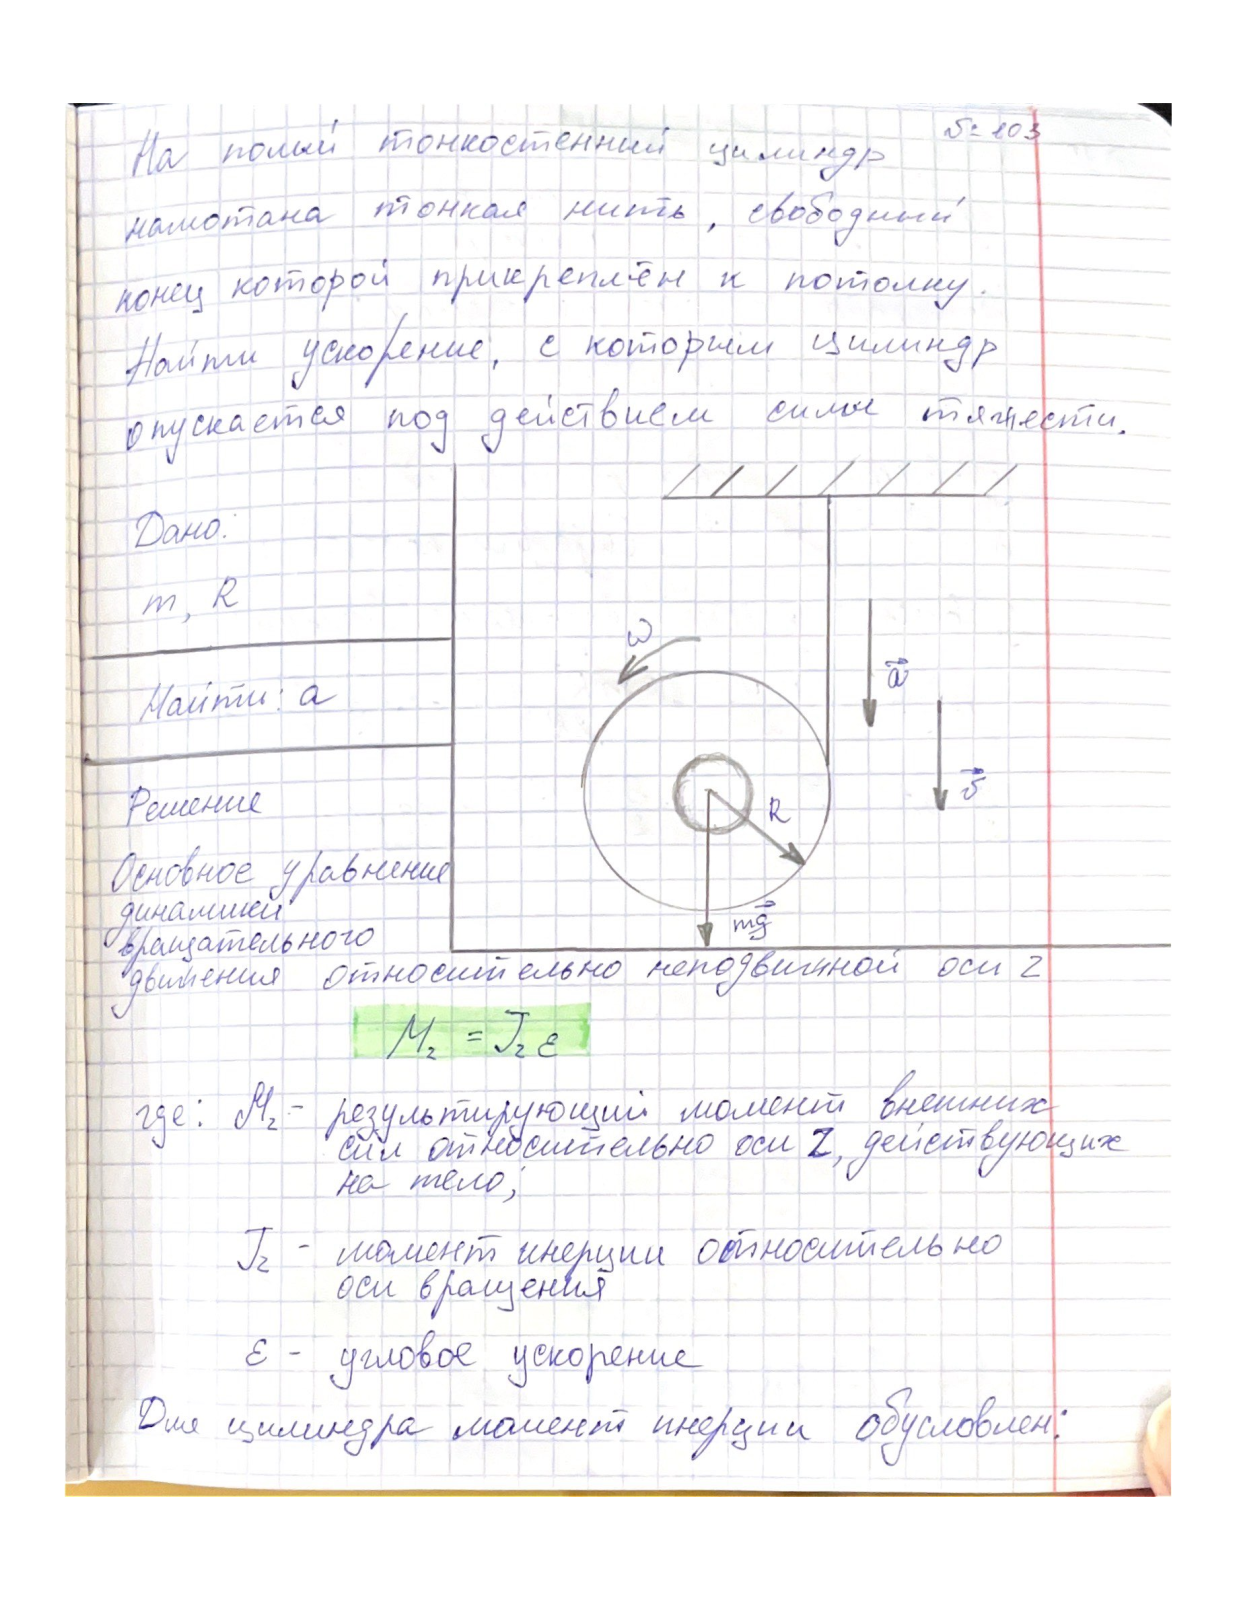 № 103
На полый тонкостенный цилиндр
намотана тонкая нить, свободный
конец которой прикреплён к потолку.
Найти ускорение, с которым цилиндр
опускается под действием силы тяжести.
Дано:
m, R
Найти: a
ω
a⃗
v⃗
R
mg⃗
Решение
Основное уравнение
динамики
вращательного
движения относительно неподвижной оси z
M_z = J_z ε
где: M_z - результирующий момент внешних
сил относительно оси Z, действующих
на тело;
J_z - момент инерции относительно
оси вращения
ε - угловое ускорение
Для цилиндра момент инерции обусловлен: